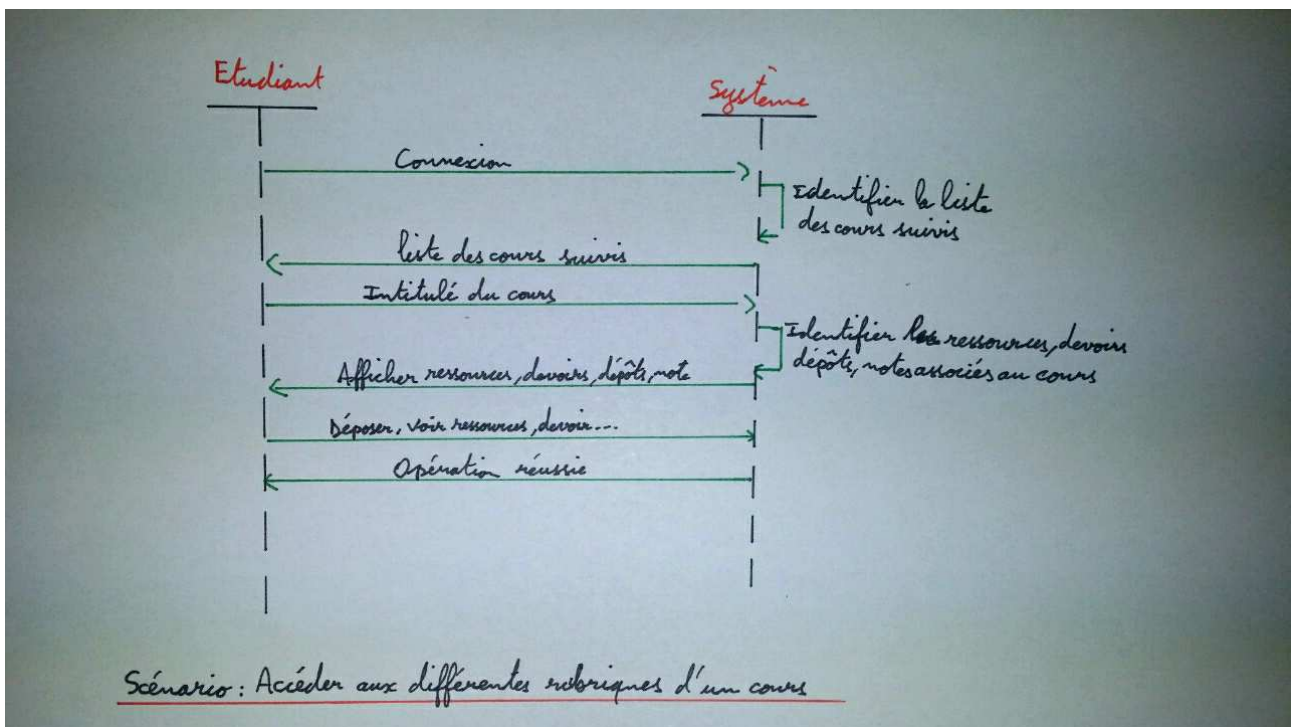 Etudiant
Système
Connexion
Identifier la liste
des cours suivis
liste des cours suivis
Intitulé du cours
Identifier les ressources, devoirs
dépôts, notes associés au cours
Afficher ressources, devoirs, dépôts, note
Déposer, voir ressources, devoir...
Opération réussie
Scénario : Accéder aux différentes rubriques d'un cours